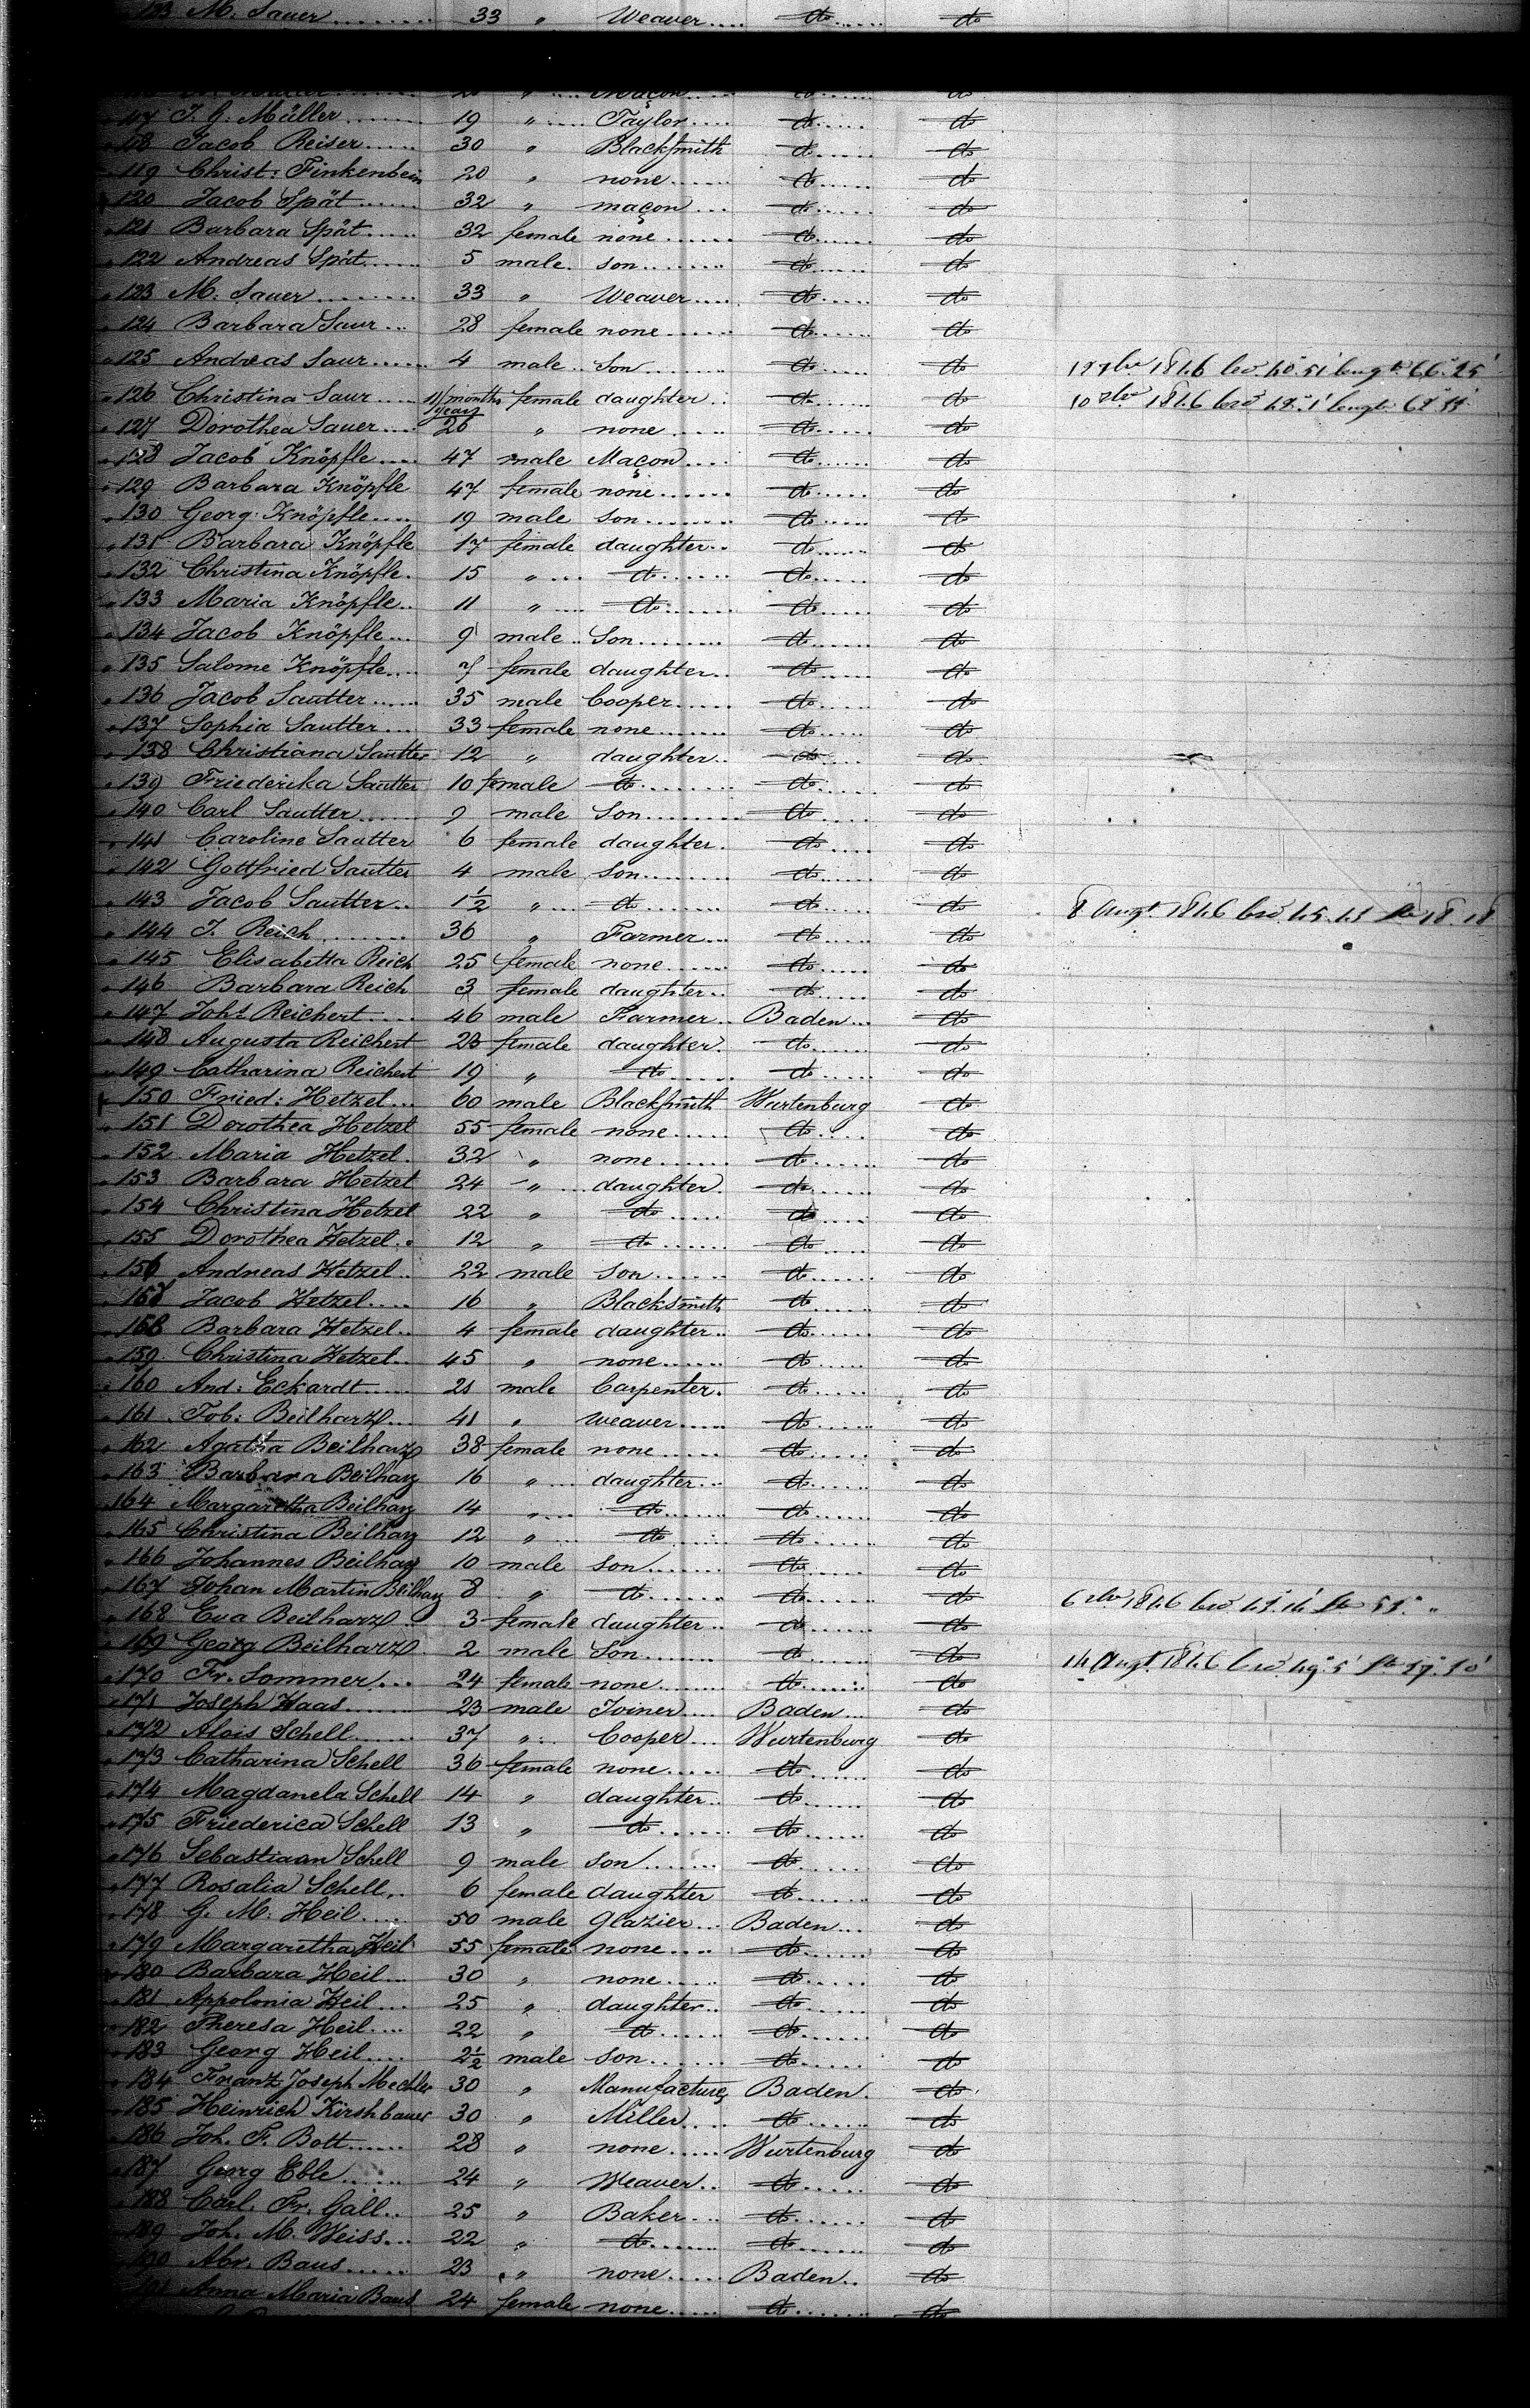 123 M. Sauer 33 " Weaver do do
117 J. G. Müller 19 " Taylor do do
118 Jacob Reiser 30 " Blacksmith do do
119 Christ: Finkenbein 20 " none do do
120 Jacob Spät 32 " maçon do do
121 Barbara Spät 32 female none do do
122 Andreas Spät 5 male son do do
123 M. Sauer 33 " Weaver do do
124 Barbara Saur 28 female none do do
125 Andreas Saur 4 male Son do do 1846
126 Christina Saur 11/months female daughter do do 10 1846
127 Dorothea Sauer years 26 " none do do
128 Jacob Knöpfle 47 male Maçon do do
129 Barbara Knöpfle 47 female none do do
130 Georg Knöpfle 19 male son do do
131 Barbara Knöpfle 17 female daughter do do
132 Christina Knöpfle 15 " do do do
133 Maria Knöpfle 11 " do do do
134 Jacob Knöpfle 9 male Son do do
135 Salome Knöpfle 7 female daughter do do
136 Jacob Sautter 35 male Cooper do do
137 Sophia Sautter 33 female none do do
138 Christiana Sautter 12 " daughter do do
139 Friederika Sautter 10 female do do do
140 Carl Sautter 9 male Son do do
141 Caroline Sautter 6 female daughter do do
142 Gottfried Sautter 4 male son do do
143 Jacob Sautter 1½ " do do do 8 Augt 1846
144 J. Reich 36 " Farmer do do
145 Elisabetha Reich 25 female none do do
146 Barbara Reich 3 female daughter do do
147 Joht Reichert 46 male Farmer Baden do
148 Augusta Reichert 23 female daughter do do
149 Catharina Reichert 19 " do do do
150 Fried: Hetzel 60 male Blacksmith Wurtenburg do
151 Dorothea Hetzel 55 female none do do
152 Maria Hetzel 32 " none do do
153 Barbara Hetzel 24 " daughter do do
154 Christina Hetzel 22 " do do do
155 Dorothea Hetzel 12 " do do do
156 Andreas Hetzel 22 male Son do do
157 Jacob Hetzel 16 " Blacksmith do do
158 Barbara Hetzel 4 female daughter do do
159 Christina Hetzel 45 " none do do
160 And: Eckardt 21 male Carpenter do do
161 Tob: Beilharz 41 " weaver do do
162 Agatha Beilharz 38 female none do do
163 Barbara Beilharz 16 " daughter do do
164 Margaretha Beilharz 14 " do do do
165 Christina Beilharz 12 " do do do
166 Johannes Beilharz 10 male son do do
167 Johan Martin Beilharz 8 " do do do 6 1846
168 Eva Beilharz 3 female daughter do do
169 Georg Beilharz 2 male Son do do
170 Fr. Sommer 24 female none do do 14 Augt 1846
171 Joseph Haas 23 male Joiner Baden do
172 Alois Schell 37 " Cooper Wurtenburg do
173 Catharina Schell 36 female none do do
174 Magdanela Schell 14 " daughter do do
175 Friederica Schell 13 " do do do
176 Sebastiaan Schell 9 male son do do
177 Rosalia Schell 6 female daughter do do
178 G. M. Heil 50 male Glazier Baden do
179 Margaretha Heil 55 female none do do
180 Barbara Heil 30 " none do do
181 Appolonia Heil 25 " daughter do do
182 Theresa Heil 22 " do do do
183 Georg Heil 2½ male son do do
184 Franz Joseph Mechler 30 " Manufacturer Baden do
185 Heinrich Kirshbauer 30 " Miller do do
186 Joh. F. Bott 28 " none Wurtenburg do
187 Georg Eble 24 " Weaver do do
188 Carl. Fr. Gall 25 " Baker do do
189 Joh. M. Weiss 22 " do do do
190 Abr. Baus 23 " none Baden do
191 Anna Maria Baus 24 female none do do